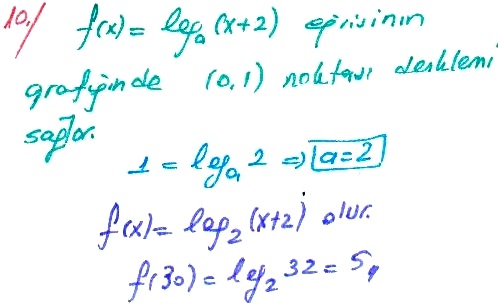 10./ f(x) = logₐ(x+2) eğrisinin
grafiğinde (0,1) noktası denklemi
sağlar.
1 = logₐ2 => a=2
f(x) = log₂(x+2) olur.
f(30) = log₂32 = 5,,